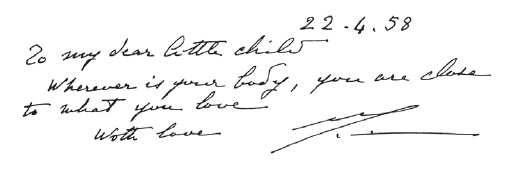 22.4.58
To my dear little child
Wherever is your body, you are close
to what you love
With love